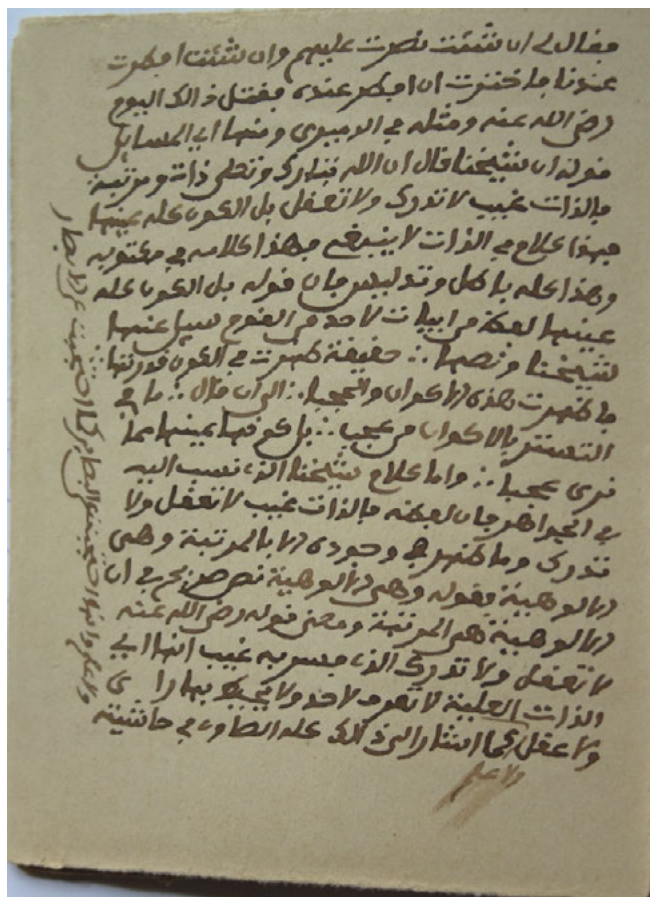 فقال لي ان شئت نصرت عليهم وان شئت افطرت
عندنا فاخترت ان افطر عنده فقتل ذالك اليوم
رضي الله عنه ومثله في ومنها اي المسايل
قوله ان شيخنا قال ان الله تبارك وتعلى ذات ومرتبة
فالذات غيب لا تدرك ولا تعقل بل الكون عله عينها
فهذا كلام في الذات لا ينبغي فهذا كلامه في مكتوبه
وهذا عله باطل وتدليس فان قوله بل الكون عله
عينها لفظة من ابيات لاحد من القوم سيل عنها
شيخنا ونصها ∴ حقيقة ظهرت في الكون قدرتها
فاظهرت هذه الاكوان والحجبا ∴ الى ان قال ∴ ما في
التستر بالاكوان من عجب ∴ بل كونها عينها مما
ترى عجبا ∴ واما كلام شيخنا الذي نسب اليه
في الجواهر فان لفظه فالذات غيب لا تعقل ولا
تدرك وما ظهر في وجوده الا بالمرتبة وهي
الالوهية فقوله وهي الالوهية نص صريح في ان
الالوهية هي المرتبة ومعنى قوله رضي الله عنه
لا تعقل ولا تدرك الذي فسر به غيب انها اي
الذات العلية لا تعرف لاحد ولا يحيط بها را ى
ولا عقل كما اشار الى ذالك عله الصاوي في حاشيته